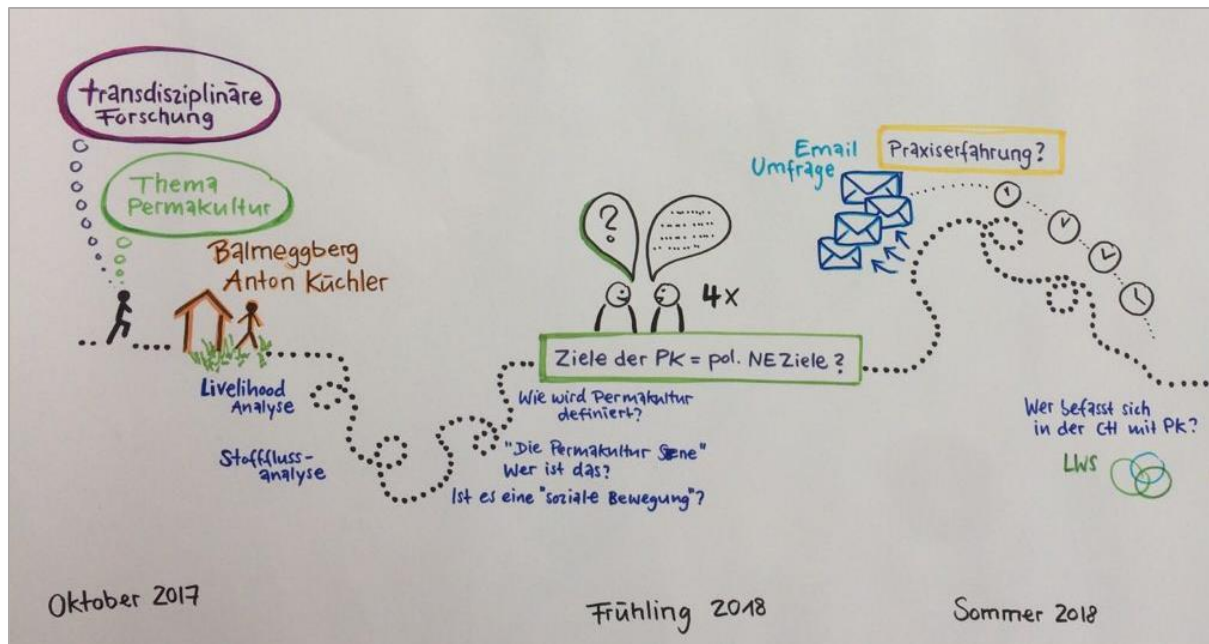 transdisziplinäre
Forschung
Thema
Permakultur
Balmeggberg
Anton Küchler
Livelihood
Analyse
Stofffluss-
analyse
?
4x
Ziele der PK = pol. NE Ziele?
Wie wird Permakultur
definiert?
"Die Permakultur Szene"
Wer ist das?
Ist es eine "soziale Bewegung"?
Email
Umfrage
Praxiserfahrung?
Wer befasst sich
in der CH mit PK?
LWS
Oktober 2017
Frühling 2018
Sommer 2018